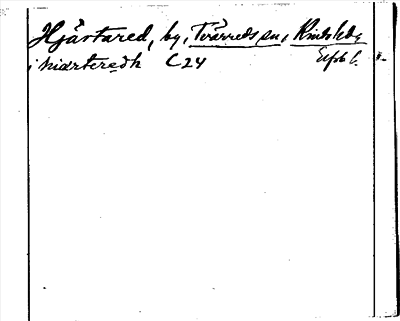 Hjärtared, by, Tvärreds sn, Kinds hd,
i hiærteredh C 24